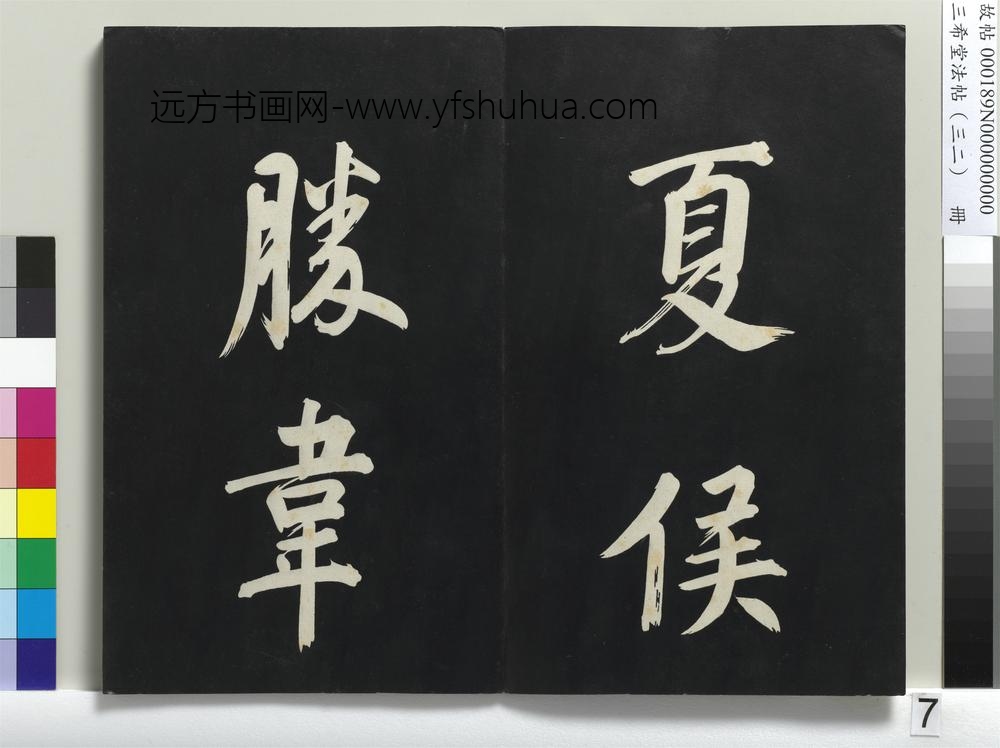 夏侯
勝韋
远方书画网-www.yfshuhua.com
故帖 000189N000000000
三希堂法帖（三二） 冊
7